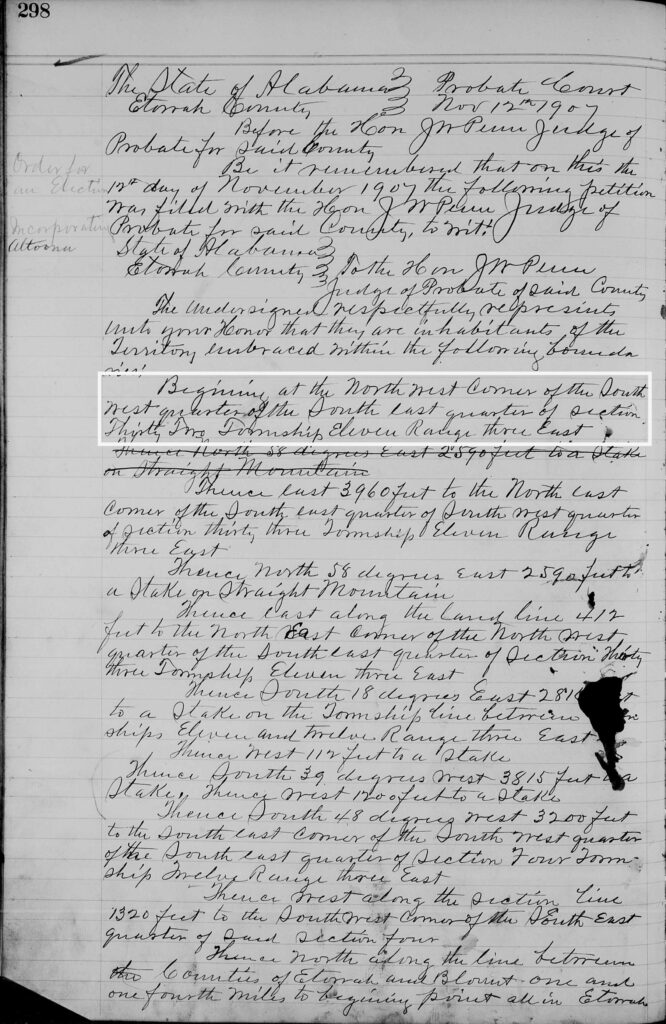 298
The State of Alabama } Probate Court
Etowah County } Nov 12th 1907
Before the Hon J W Penn Judge of
Probate for said County
Order for
an Election
Incorporating
Altoona
Be it remembered that on this the
12th day of November 1907 the following petition
was filed with the Hon J W Penn Judge of
Probate for said County, to wit.
State of Alabama }
Etowah County } To the Hon J W Penn
Judge of Probate of said County
The undersigned respectfully represents
unto your Honor that they are inhabitants of the
Territory embraced within the following bounda
ries:
Begining at the North West Corner of the South
West quarter of the South east quarter of section
Thirty Two Township Eleven Range three East
Thence North 58 degrees East 2590 feet to a Stake
on Straight Mountain
Thence east 3960 feet to the North east
Corner of the South east quarter of South west quarter
of section thirty three Township Eleven Range
three East
Thence North 58 degrees East 2590 feet to
a Stake on Straight Mountain
Thence east along the land line 412
feet to the North East Corner of the North West
quarter of the South east quarter of Section Thirty
three Township Eleven three East
Thence South 18 degrees East
to a Stake on the Township line between
ships Eleven and twelve Range three East
Thence West 112 feet to a Stake
Thence South 39 degrees West 3815 feet to a
Stake, Thence West 1200 feet to a Stake
Thence South 48 degrees West 3200 feet
to the South east Corner of the South West quarter
of the South east quarter of Section Four Town-
ship Twelve Range three East
Thence West along the section line
1320 feet to the South West Corner of the South East
quarter of said section four
Thence North along the line between
the Counties of Etowah and Blount one and
one fourth miles to begining point all in Etowah